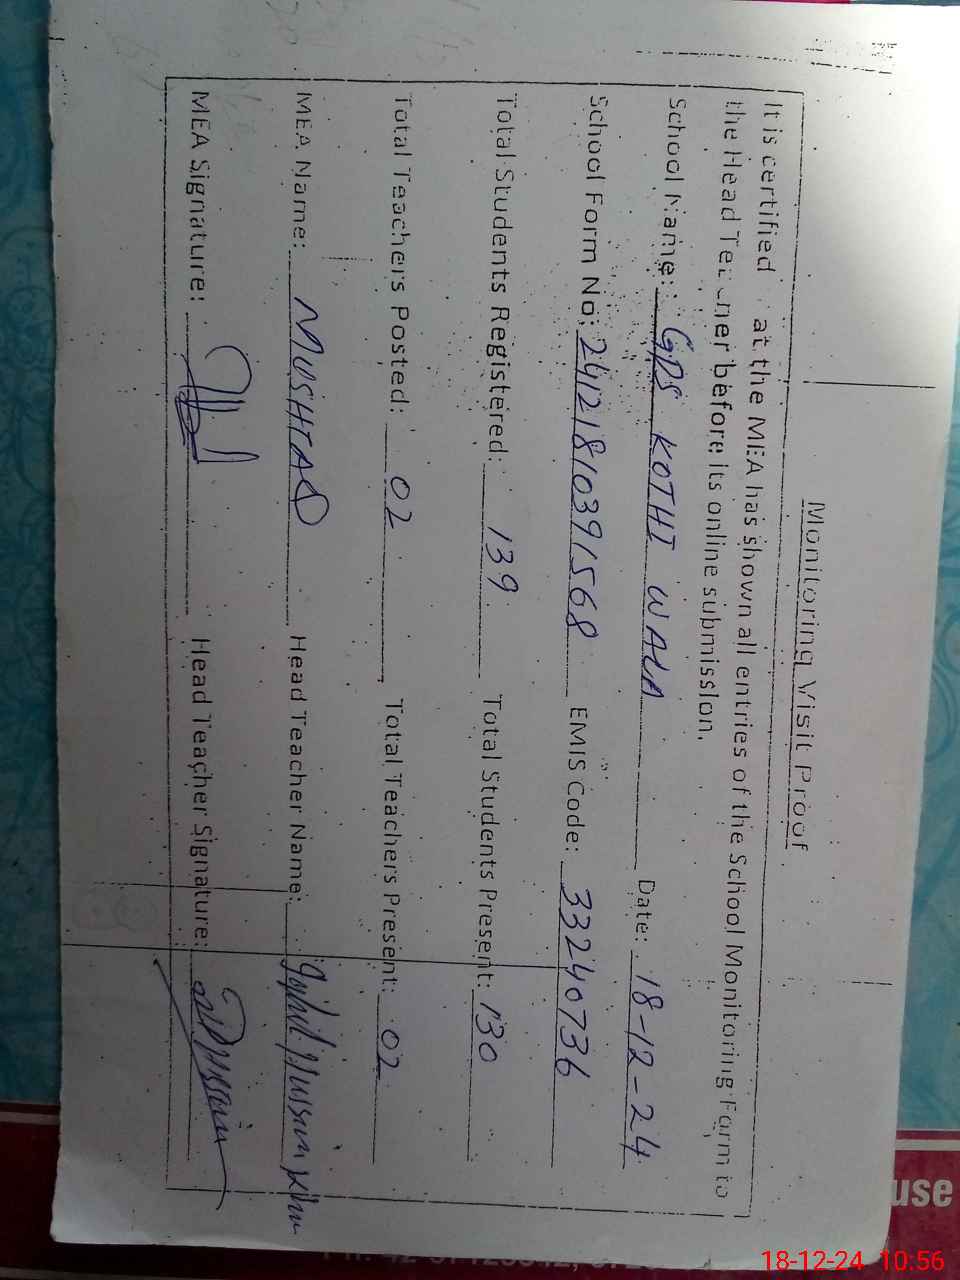 Monitoring Visit Proof
It is certified that the MEA has shown all entries of the School Monitoring Form to
the Head Teacher before its online submission.
School Name: GPS KOTHI WALA Date: 18-12-24
School Form No: 24121810391568 EMIS Code: 33240736
Total Students Registered: 139 Total Students Present: 130
Total Teachers Posted: 02 Total Teachers Present: 02
MEA Name: MUSHTAQ Head Teacher Name: Hussain
MEA Signature: Head Teacher Signature: Hussain
use
18-12-24 10:56